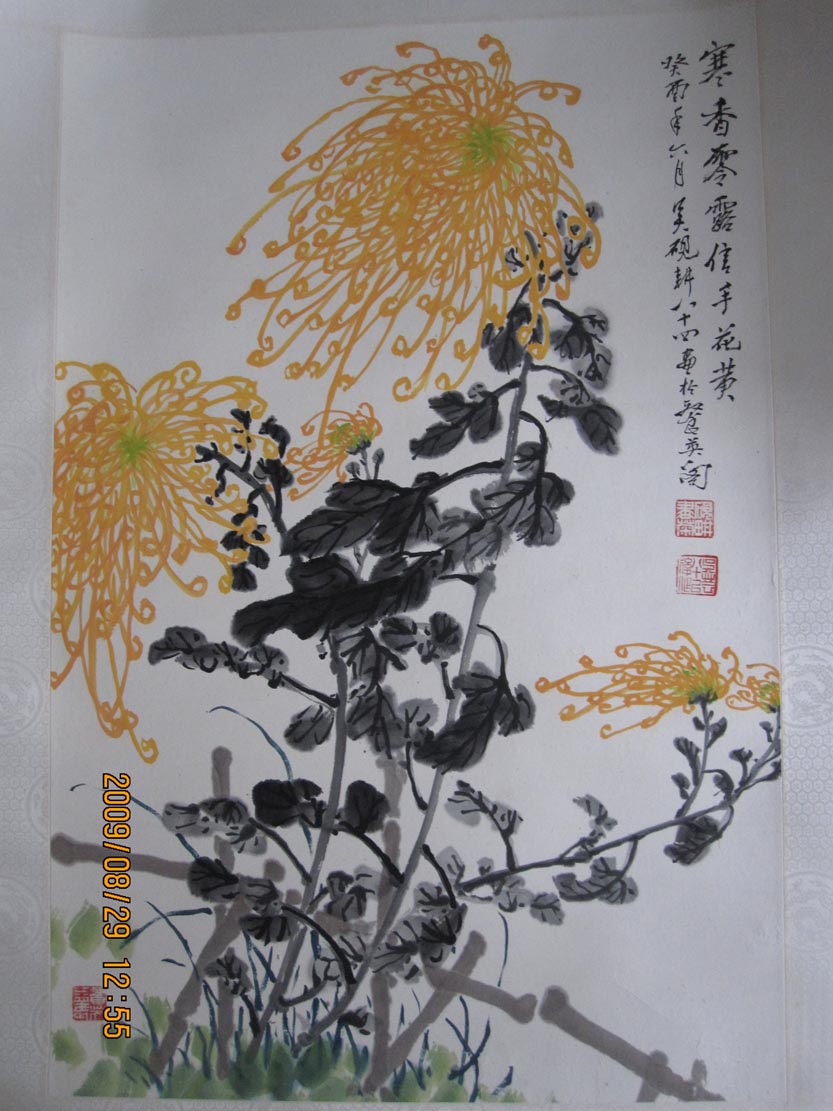 寒香零露信手花黄
癸酉年六月吴砚耕八十四画於餐英阁
2009/08/29 12:55